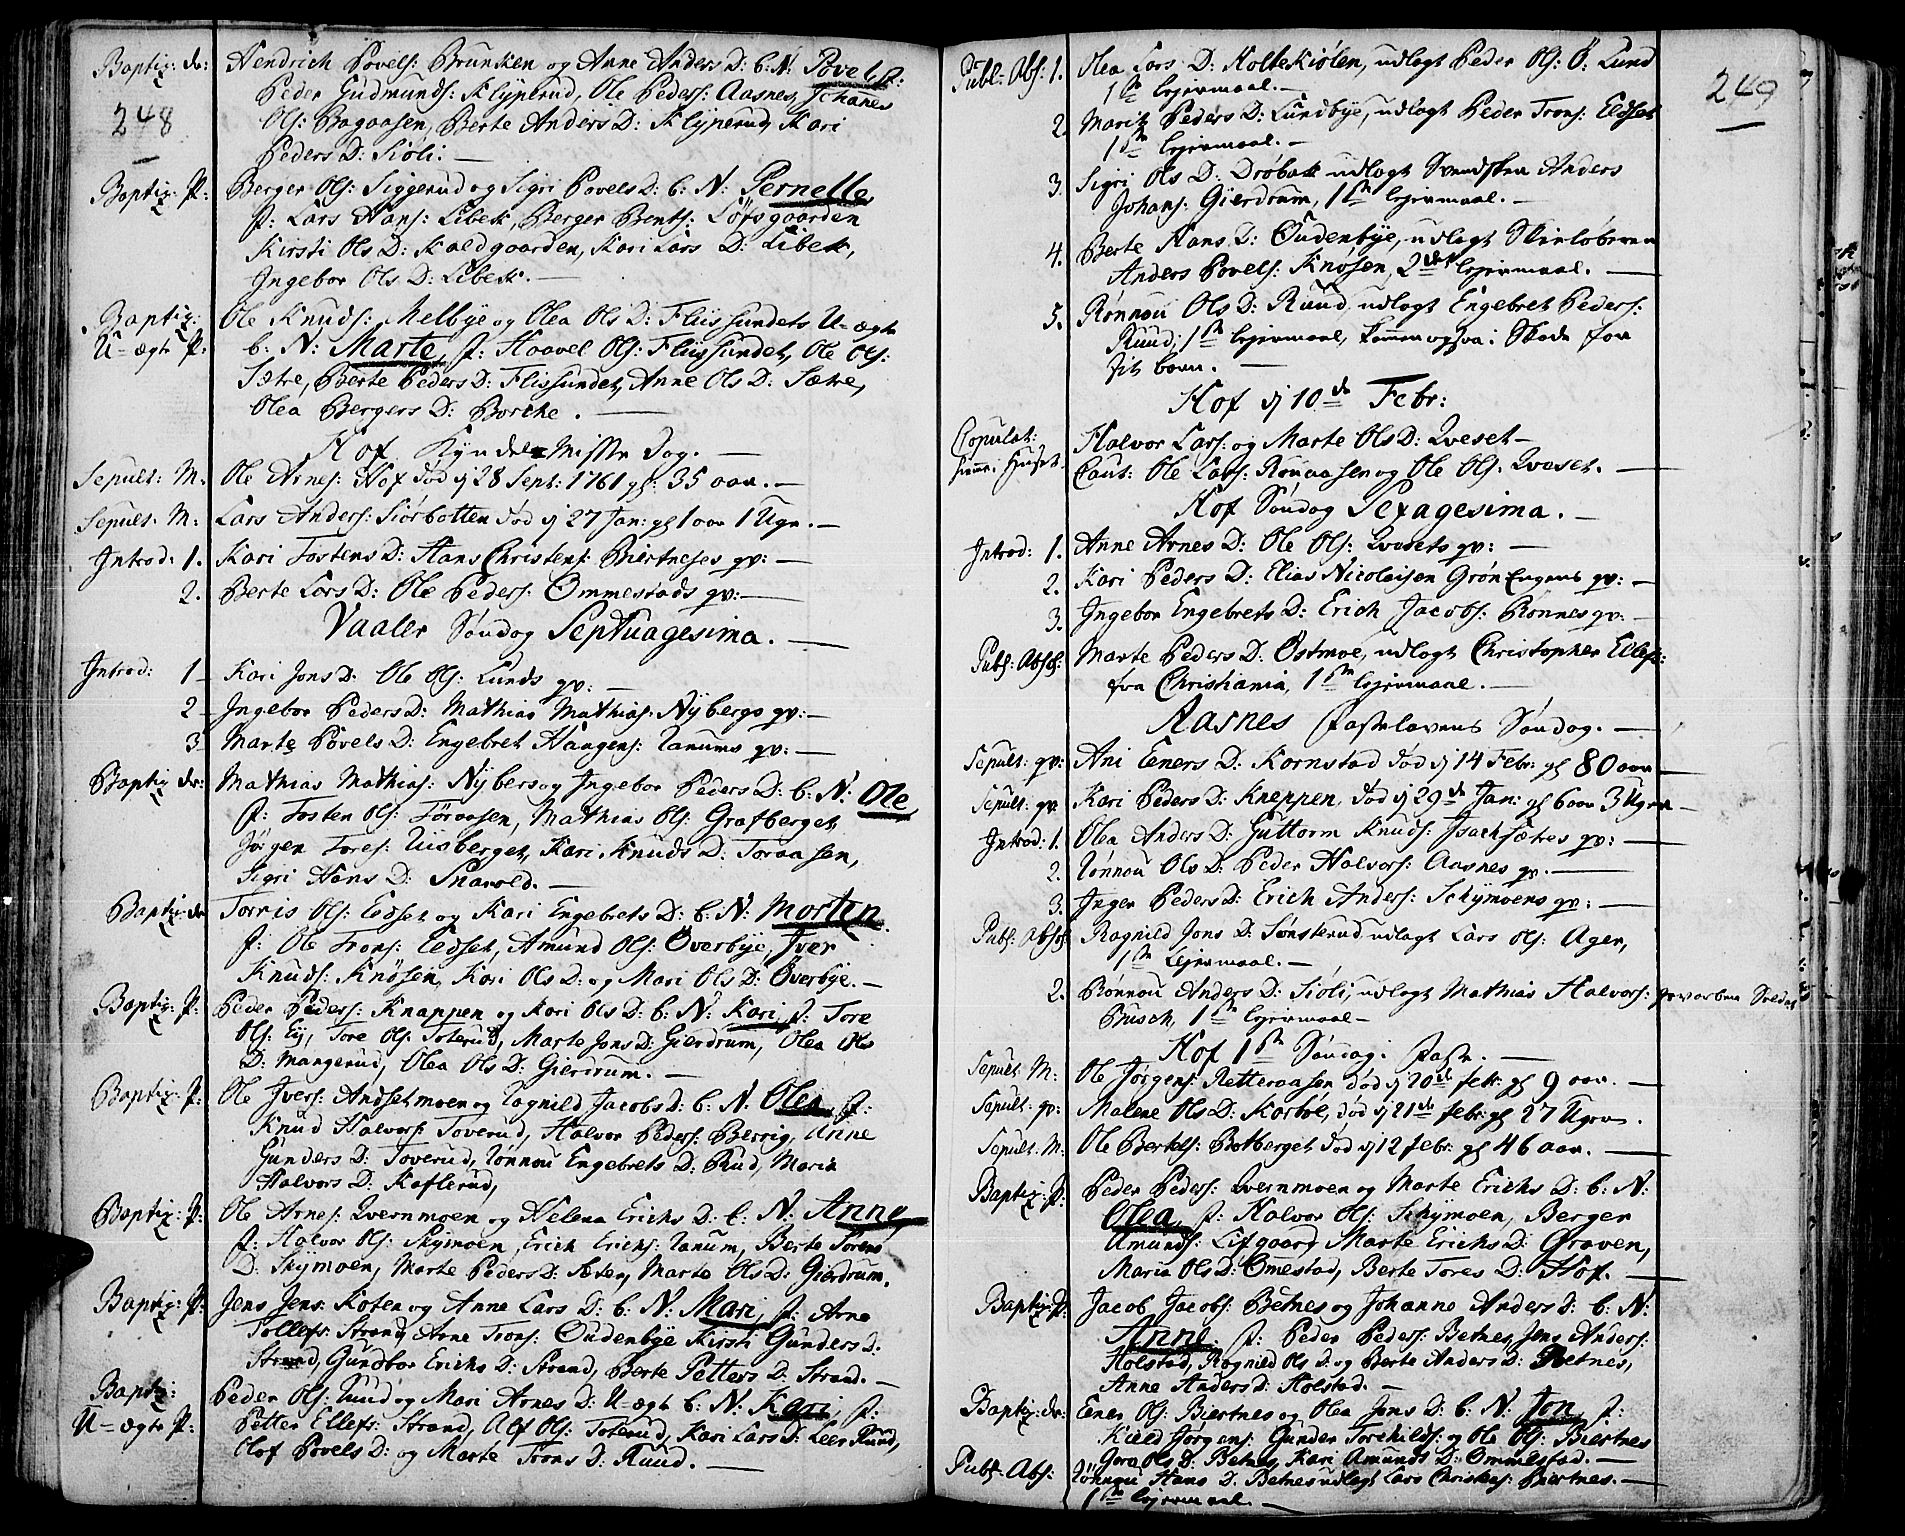 Baptiz: dr: Hendrich Povels: Brunken og Anne Anders D: b: N: Povel, f:
248 Peder Gudmunds: Klyperud, Ole Peders: Aasnes, Johanes
Ols: Bagaasen, Berte Anders D: Klyperud, Kari
Peders D: Sioli. —
Baptiz: P: Berger Ols: Siggerud og Sigri Povels D: b: N: Pernelle
f: Lars Hans: Libek, Berger Bents: Löfsgaarden
Kirsti Ols D: Kaldgaarden, Kari Lars D: Libek,
Ingebor Ols D: Libek. —
Baptiz: Ole Knuds: Melbye og Olea Ols D: Flissundets U-ægte
U-ægte P: b: N: Marte, f: Haavel Ols: Flissundet, Ole Ols:
Sætre, Berte Peders D: Flissundet, Anne Ols D: Sætre,
Olea Bergers D: Borche. —
Hof Kyndelmisse Dag. —
Sepult: M: Ole Arnes: Hof død d 28 Sept: 1761 gl: 35 aar. —
Sepult: M: Lars Anders: Siörbotten død d 27 Jan: gl 1 aar 1 Uge. —
Introd: 1. Kari Tostens D: Hans Christens: Biertneses qv: —
2. Berte Lars D: Ole Peders: Ommestads qv: —
Vaaler Søndag Septuagesima. —
Introd: 1 — Kari Jons D: Ole Ols: Lunds qv: —
2 — Ingebor Peders D: Mathias Mathias: Nybergs qv: —
3 — Marte Povels D: Engebret Haagens: Tanums qv: —
Baptiz dr: Mathias Mathias: Nyberg og Ingebor Peders D: b: N: Ole
f: Tosten Ols: Toraasen, Mathias Ols: Grafberget,
Jörgen Tores: Uisberget, Kari Knuds D: Toraasen,
Sigri Hans D: Snarold. —
Baptiz: dr Torris Ols: Eldset og Kari Engebrets D: b: N: Morten
f: Ole Trons: Eldset, Amund Ols: Overbye, Iver
Knuds: Knösen, Kari Ols D: og Mari Ols D: Overbye. —
Baptiz: P: Peder Peders: Knappen og Kari Ols D: b: N: Kari, f: Tore
Ols: Eij, Tore Ols: Toterud, Marte Jons D: Gierdrum, Olea Ols
D: Mangerud, Olea Ols D: Gierdrum. —
Baptiz: P: Ole Ivers: Andsetmoen og Ragnild Jacobs D: b: N: Olea, f:
Knud Halvors: Toverud, Halvor Peders: Berrig, Anne
Gunders D: Toverud, Rönnou Engebrets D: Rud, Maria
Halvors D: Kaflerud,
Baptiz: P: Ole Arnes: Qvernmoen og Helena Erichs D: b: N: Anne,
f: Halvor Ols: Skymoen, Erich Erichs: Tanum, Berte Torens
D: Skymoen, Marte Peders D: Sæter, Marte Ols D: Gierdrum.
Baptiz: P: Jens Jens: Koten og Anne Lars D: b: N: Mari, f: Arne
Tollefs: Strand, Arne Trons: Oudenbye, Kirsti Gunders D:
Strand, Gundbor Erichs D: Strand, Berte Petters D: Strand. —
Baptiz: Peder Ols: Ruud og Mari Arnes D: U-ægte b: N: Kari, f:
U-ægte P: Petter Ellefs: Strand, Alf Ols: Toterud, Kari Lars D: Leer Ruud,
Olof Povels D: og Marte Trons D: Ruud. —
249
Publ: Abs: 1. Olea Lars D: Holtekiölen, udlagt Peder Ols: Ö: Lund
1ste Lejermaal. —
2. Marit Peders D: Lundbye, udlagt Peder Trons: Eldset
1ste Lejermaal. —
3. Sigri Ols D: Dröbak udlagt Svendsken Anders
Johans: Gierdrum, 1ste Lejermaal. —
4. Berte Hans D: Oudenbye, udlagt Skieløberen
Anders Povels: Knösen, 2det Lejermaal. —
5. Rönnou Ols D: Ruud, udlagt Engebret Peders:
Ruud, 1ste Lejermaal, kommen ogsaa i Skade for
sit barn. —
Hof d 10de Febr:
Copulat: Halvor Lars: og Marte Ols D: Qveset —
hieme i Huset. Caut: Ole Lars: Rönaasen og Ole Ols: Qveset. —
Hof Søndag Sexagesima. —
Introd: 1. Anne Arnes D: Ole Ols: Qvesets qv: —
2. Kari Peders D: Elias Nicolaisen Grön Engens qv: —
3. Ingebor Engebrets D: Erich Jacobs: Rönnes qv: —
Publ: Absol: Marte Peders D: Ostmoe, udlagt Christopher Ellefs:
fra Christiania, 1ste Lejermaal. —
Aasnes Fastelavens Søndag. —
Sepult: qv: Ani Eners D: Kornstad død d 14 Febr: gl 80 aar —
Sepult: qv Kari Peders D: Kneppen, død d 29de Jan: gl 6 aar 3 Uger —
Introd: 1. Olea Anders D: Guttorm Knuds: Isachsætres qv: —
2. Rönnou Ols D: Peder Halvors: Aasnes qv. —
3. Inger Peders D: Erich Anders: Schymoens qv: —
Publ: Absol: Ragnild Jons D: Sönsterud udlagt Lars Ols: Ager,
1ste Lejermaal. —
2. Rönnou Anders D: Sioli, udlagt Mathias Halvors: gevorben Soldat
Busch, 1ste Lejermaal —
Hof 1ste Søndag i Faste. —
Sepult: M: Ole Jørgens: Retteraasen død d 20de febr: gl 9 aar. —
Sepult: qv: Malene Ols D: Kortöe, død d 21de febr: gl 27 Uger.
Sepult: M: Ole Bertels: Botberget død d 12 febr: gl 46 aar. —
Baptiz: P: Peder Peders: Qvernmoen og Marte Erichs D: b: N:
Olea, f: Halvor Ols: Schymoen, Berger
Amunds: Lifgaard, Marte Erichs D: Graven,
Maria Ols D: Omestad, Berte Tores D: Hof. —
Baptiz: P: Jacob Jacobs: Betnes og Johanne Anders D: b: N:
Anne. f: Peder Peders: Betnes, Jens Anders:
Holstad, Ragnild Ols D: og Berte Anders D: Betnes,
Anne Anders D: Holstad. —
Baptiz: dr: Ener Ols: Biertnes og Olea Jons D: b: N: Jon, f:
Kield Jørgens: Gunder Torchilds: og Ole Ols: Biertnes
Gora Ols D: Betnes, Kari Amunds D: Ommestad. —
Publ: Abs: Rönnou Hans D: Betnes udlagt Lars Christens: Biertnes. —
1ste Lejermaal. —